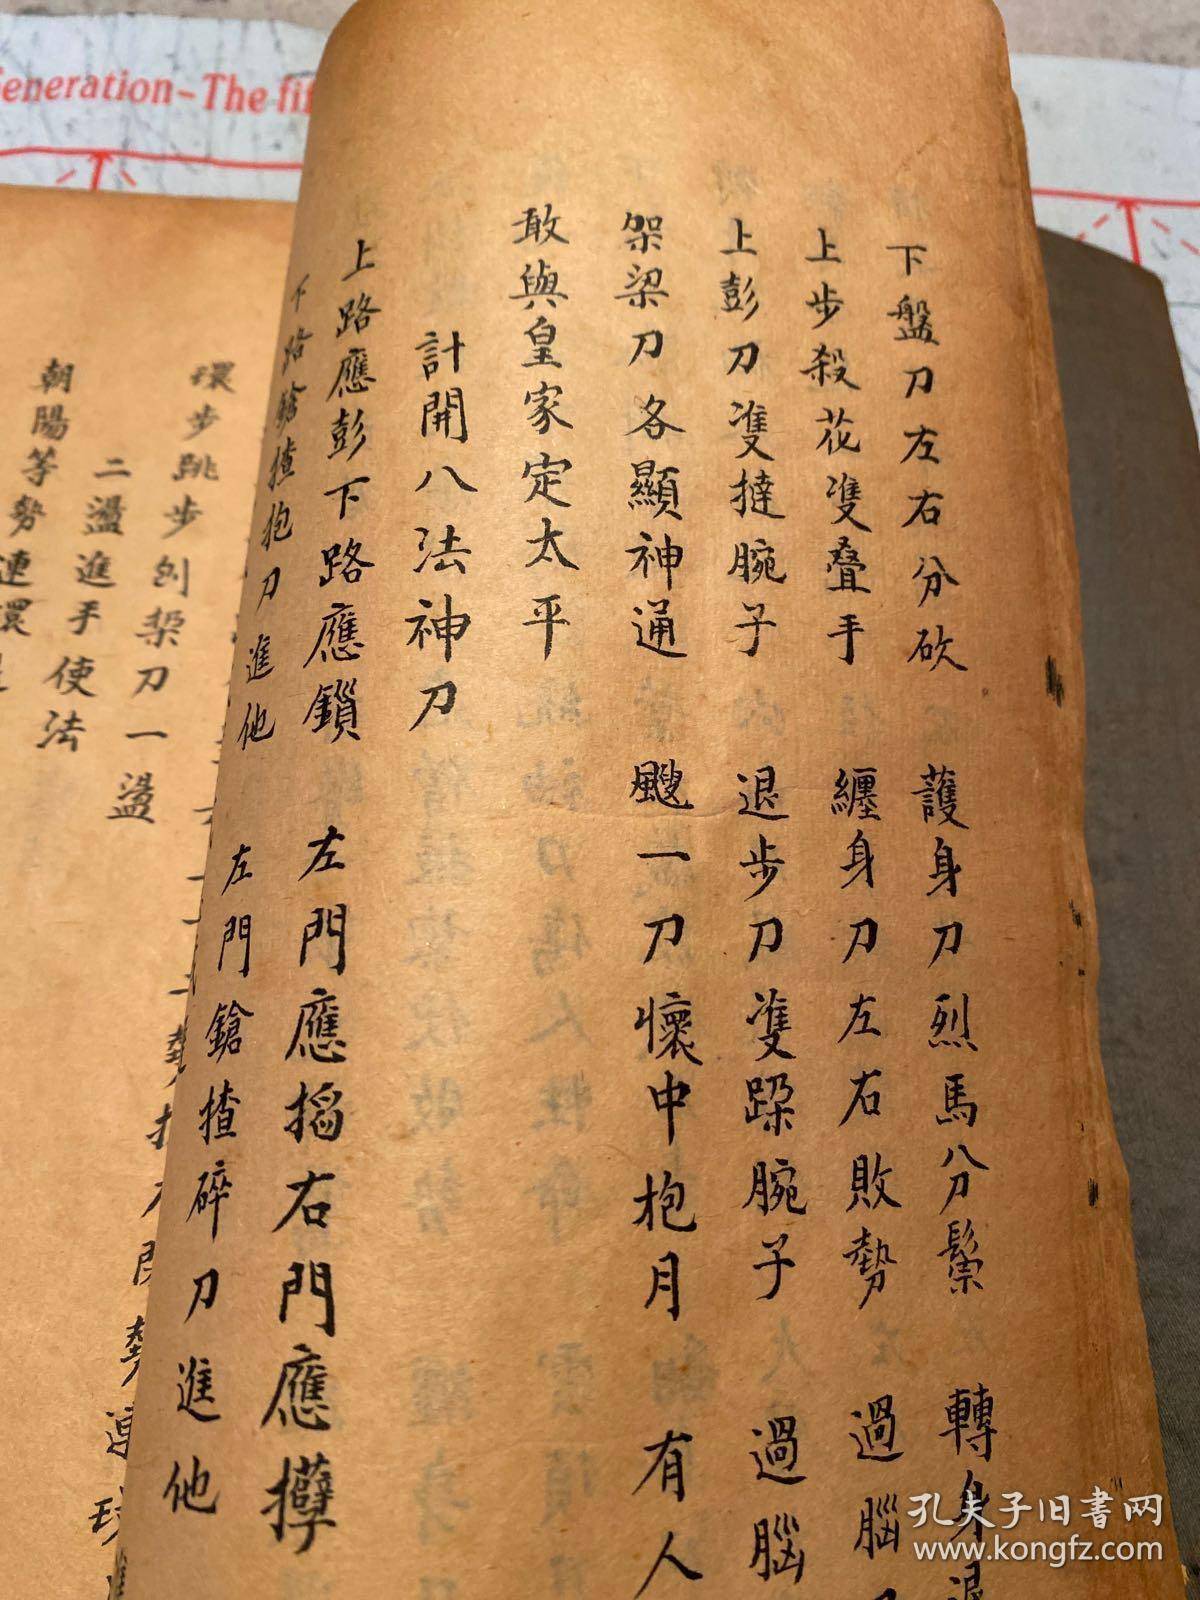 Generation-The fif
下盤刀左右分砍 護身刀烈馬分鬃 轉身退
上步殺花雙叠手 纏身刀左右敗勢 過腦刀
上彭刀雙撻腕子 退步刀雙踩腕子 過腦
架梁刀各顯神通 颼一刀懷中抱月 有人
敢與皇家定太平
計開八法神刀
上路應彭下路應鎖 左門應搯右門應
下路鎗揸抱刀進他 左門鎗揸碎刀進他
環步跳步刣架刀一盪
二盪進手使法
朝陽等勢連環
孔夫子旧书网
www.kongfz.com